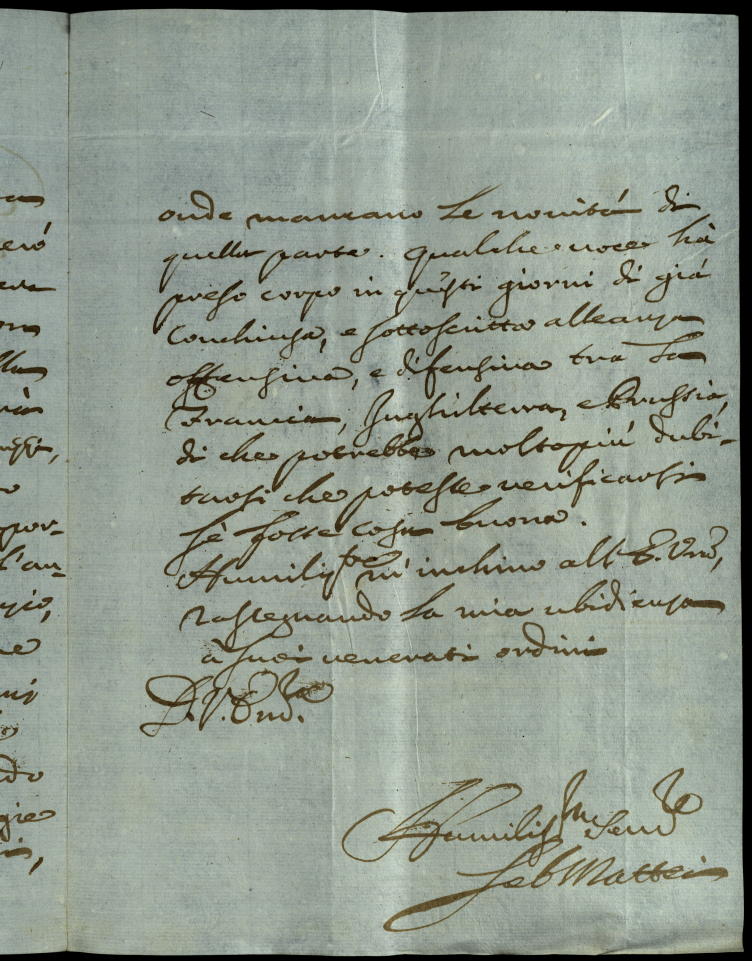 onde mancano le novità di
quella parte. Qualche voce hà
preso corpo in questi giorni di già
conchiusa, e sottoscritta alleanza
offensiva, e difensiva tra la
Francia, Inghilterra, e Prussia,
di che potrebbe molto più dubi-
tarsi che potesse verificarsi
sè fosse cosa buona.
Humiliss.te m'inchino all'E. Vrã,
rassegnando la mia ubidienza
à suoi venerati ordini
D. V. Em.
Humiliss.mo Serv.re
Seb Mattei